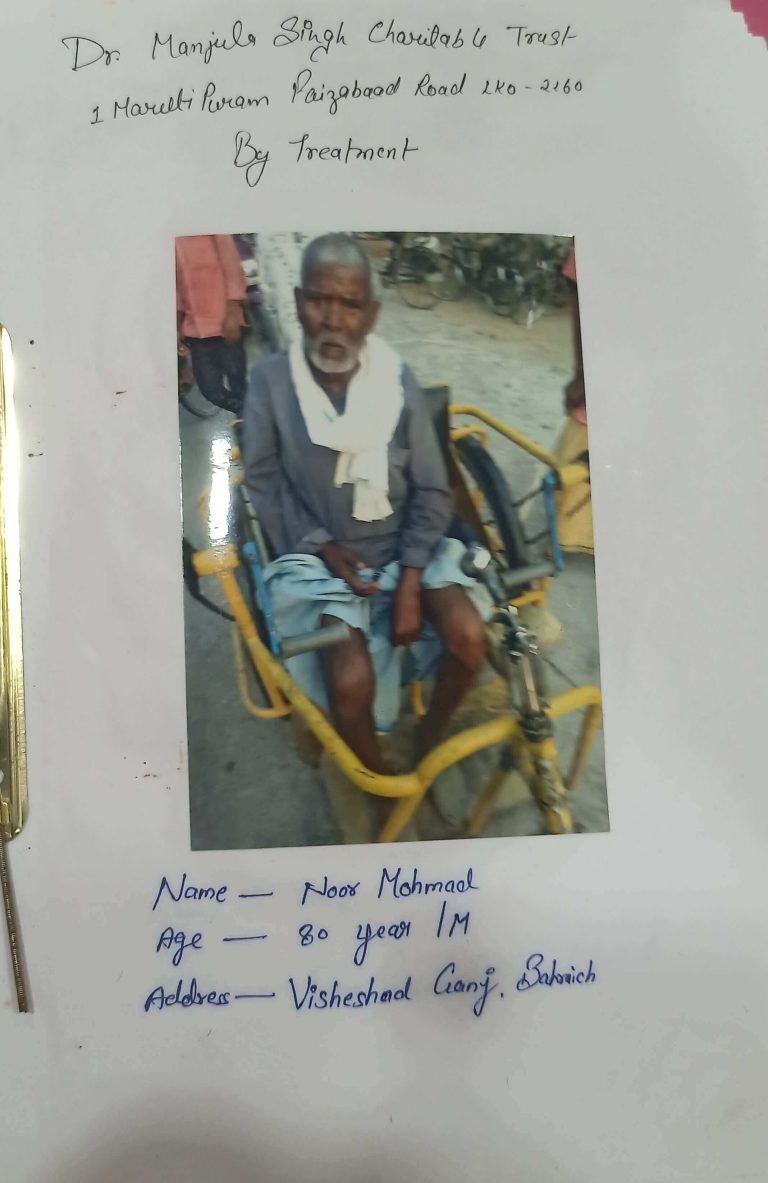 Dr. Manjula Singh Charitable Trust
1 Maruti Puram Faizabaad Road LKO - 2260
By Treatment
Name — Noor Mohmad
Age — 80 year / M
Address — Visheshad Ganj, Bahraich